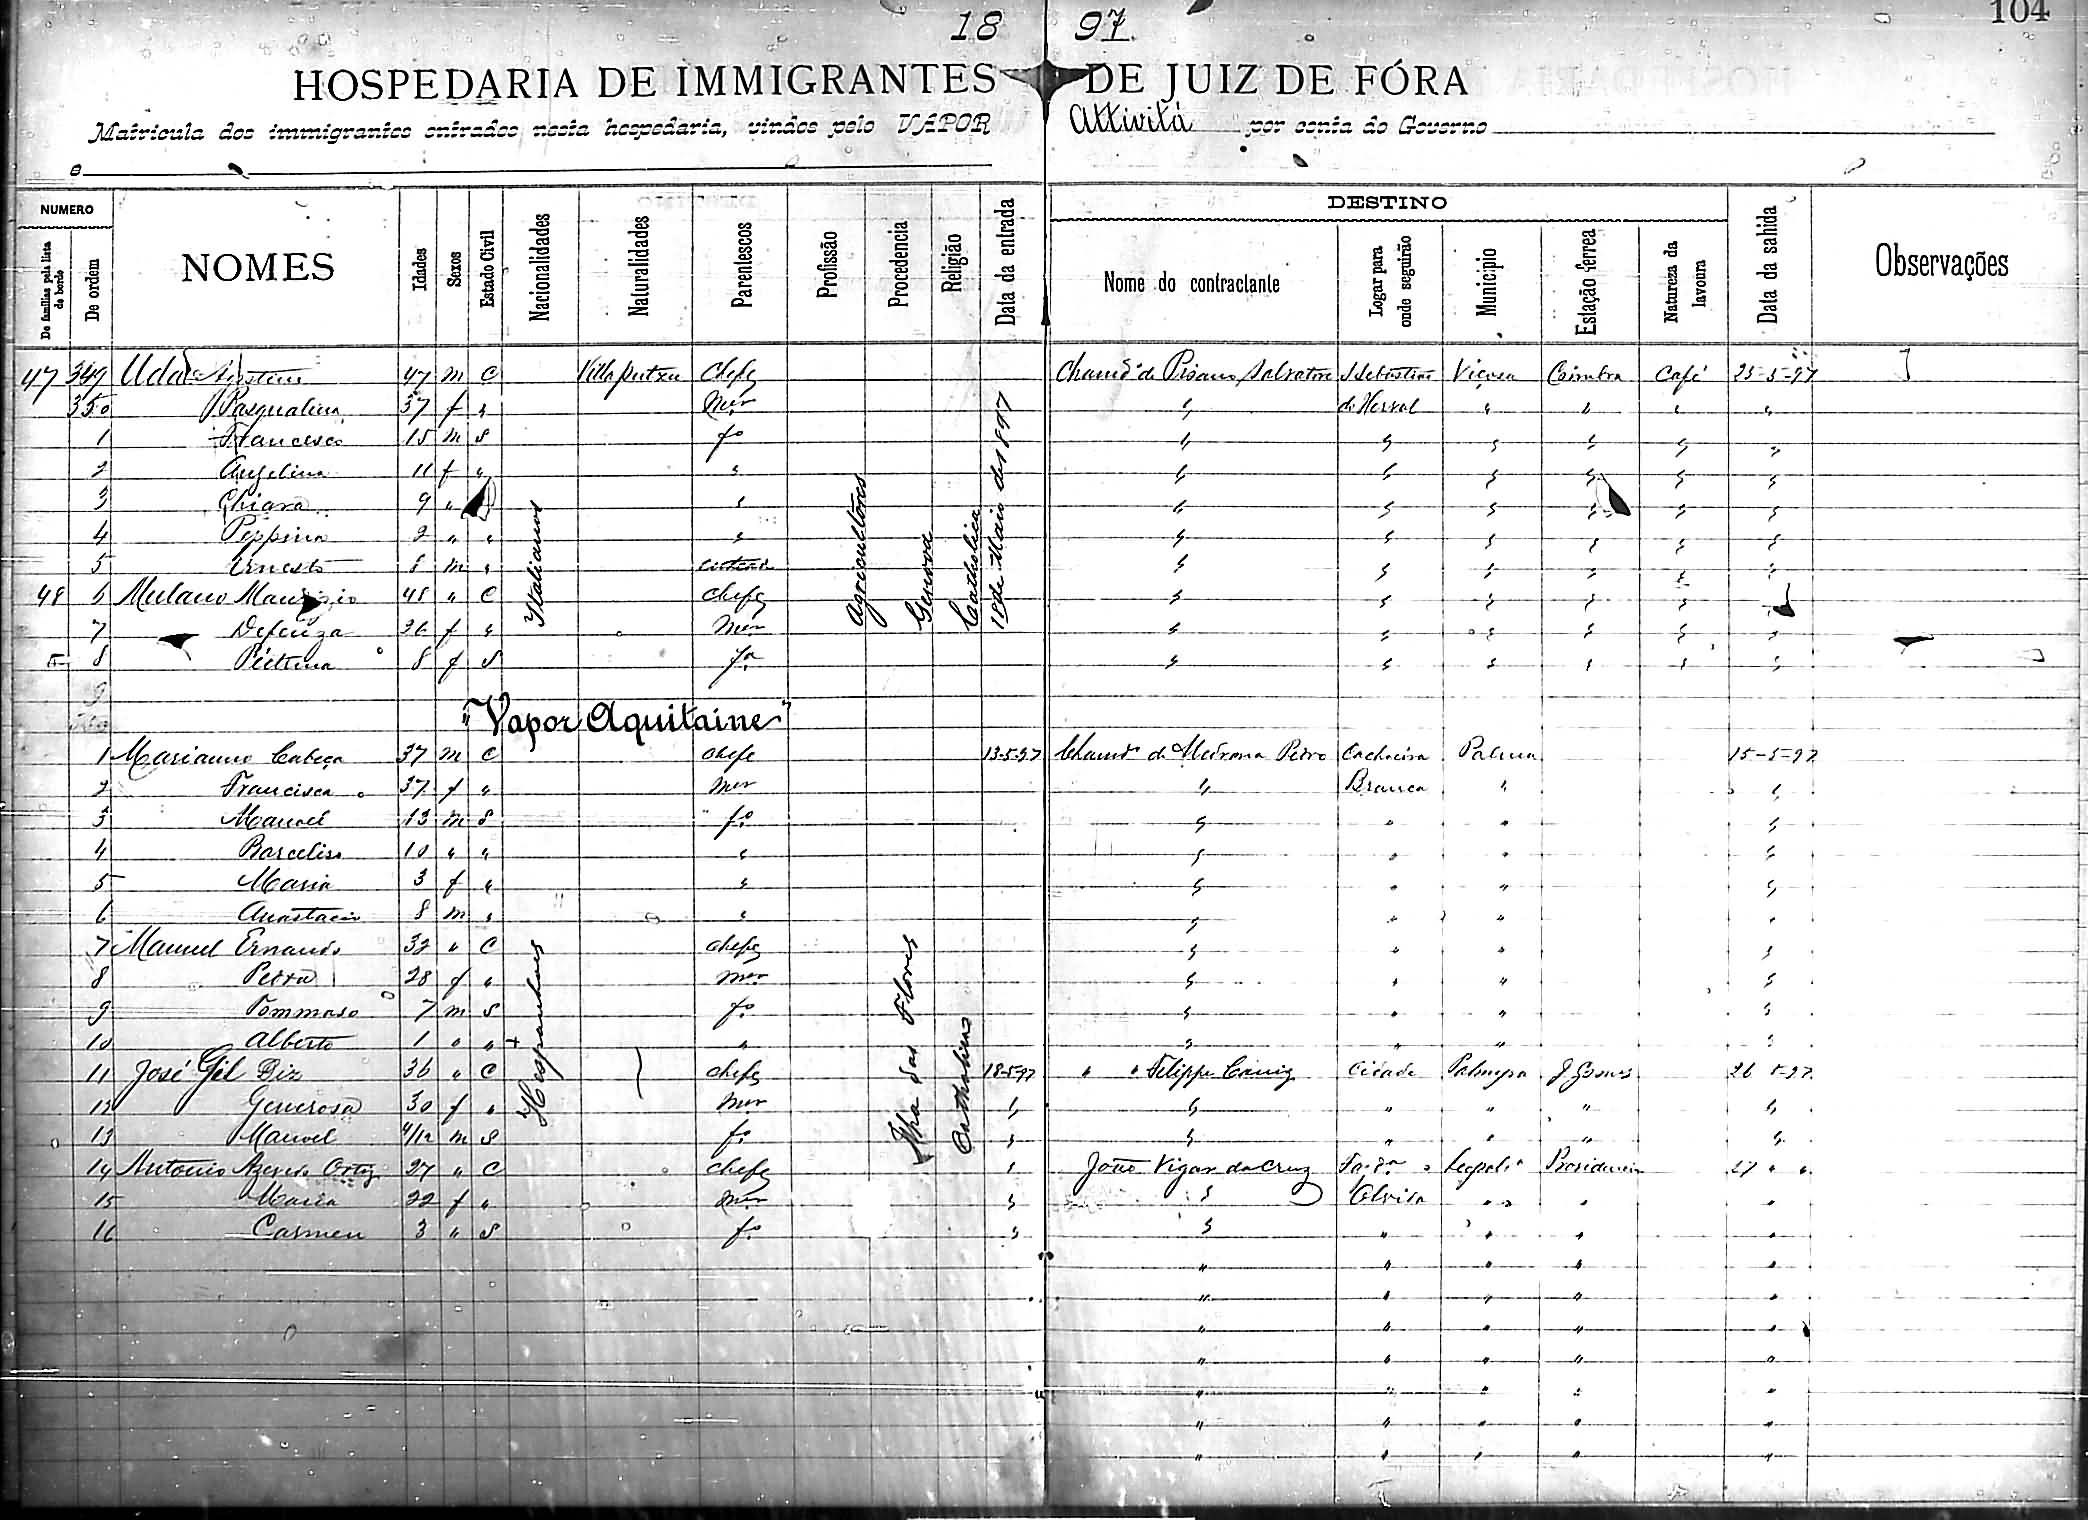 104
18 97
HOSPEDARIA DE IMMIGRANTES DE JUIZ DE FÓRA
Matricula dos immigrantes entrados nesta hospedaria, vindos pelo VAPOR Attivitá por conta do Governo
e
NUMERO DESTINO
De familias pela lista de bordo De ordem NOMES Idades Sexos Estado Civil Nacionalidades Naturalidades Parentescos Profissão Procedencia Religião Data da entrada Nome do contractante Logar para onde seguirão Municipio Estação ferrea Natureza da lavoura Data da sahida Observações
47 349 Uda 47 m C Villaputzu Chefe Chamdo de Pisano Salvatore S Sebastião Viçosa Coimbra Café 25-5-97
350 Pasqualina 37 f " Mer " do Herval " " " "
1 Francesco 15 m S fo " " " " " "
2 Angelina 11 f " " " " " " " "
3 Chiara 9 " " " " " " " "
4 Peppina 2 " " " " " " " " "
5 Ernesto 8 m " " " " " " "
48 6 Mulano Maurizio 48 " C Chefe " " " " "
7 Defenza 36 f " Mer " " " " " "
8 8 f S fa " " " " " "
Italianos Agricultores Genova Catholica 18 de Maio de 1897
9
"Vapor Aquitaine"
1 Marianno Cabeça 37 m C Chefe 13-5-97 Chamdo de Pedro Cachoeira Palma 15-5-97
2 Francisca 37 f " Mer " Branca " "
3 Manoel 13 m S fo " " " "
4 10 " " " " " " "
5 Maria 3 f " " " " " "
6 Anastacio 8 m " " " " " "
7 Manuel Ernando 32 " C Chefe " " " "
8 Petra 28 f " Mer " " " "
9 Tommaso 7 m S fo " " " "
10 Alberto 1 " " + " " " " "
11 José Gil Diz 36 " C Chefe 18-5-97 " " Felippe Cidade Palmyra J Gomes 26 5-97
12 Generosa 30 f " Mer " " " " " "
13 Manoel 4/12 m S fo " " " " " "
14 Antonio Ortiz 27 " C Chefe " João Vigar da Cruz Leopola Providencia 27 " "
15 Maria 22 f " Mer " " " " "
16 Carmen 3 " S fo " " " " " "
Hespanhoes Ilha das Flores
" " " " "
" " " " "
" " " " "
" " " "
" " " " "
" " " " "
" " " " "